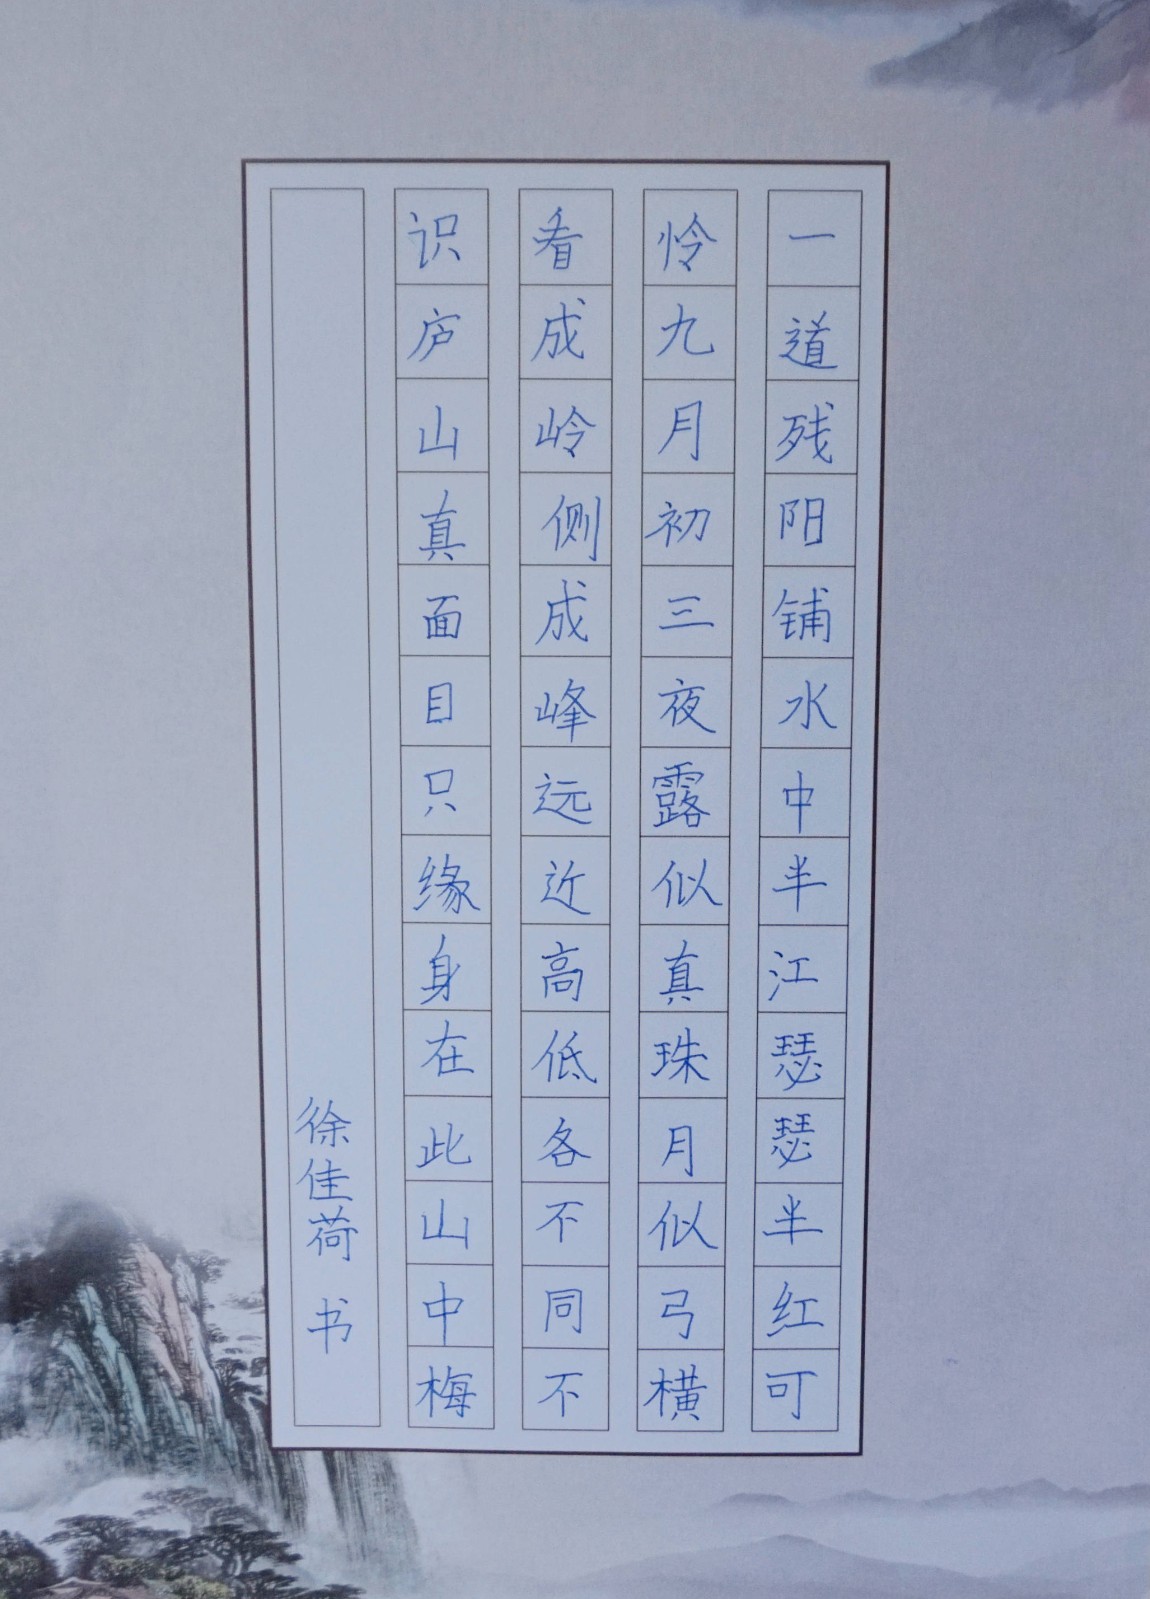 一道残阳铺水中半江瑟瑟半红可
怜九月初三夜露似真珠月似弓横
看成岭侧成峰远近高低各不同不
识庐山真面目只缘身在此山中梅
徐佳荷 书